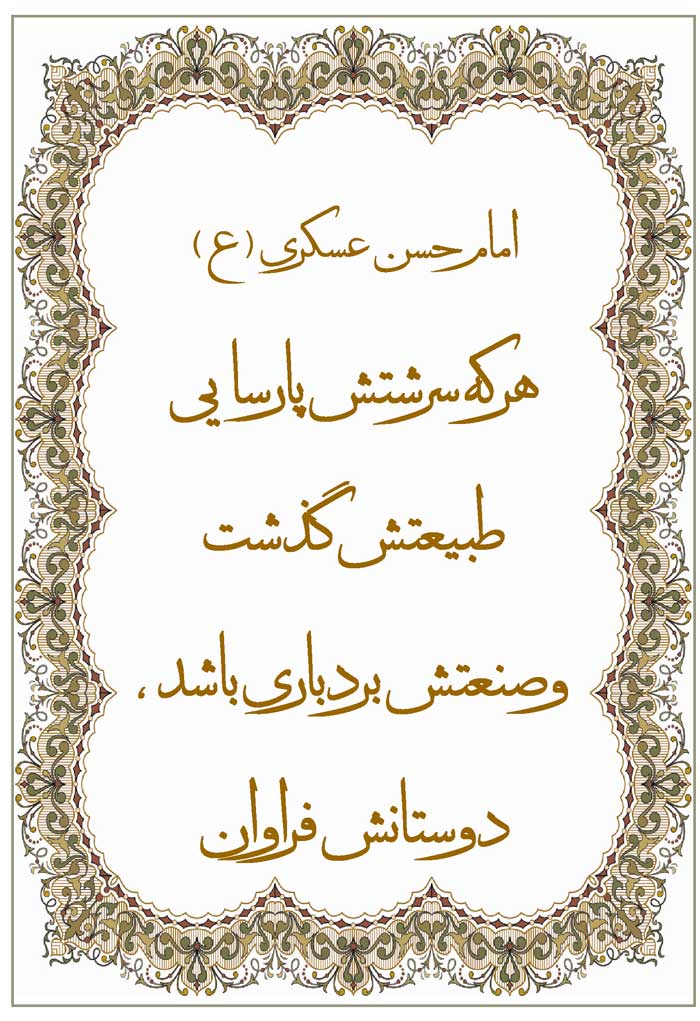 امام حسن عسکری (ع)
هرکه سرشتش پارسایی
طبیعتش گذشت
وصنعتش بردباری باشد ،
دوستانش فراوان